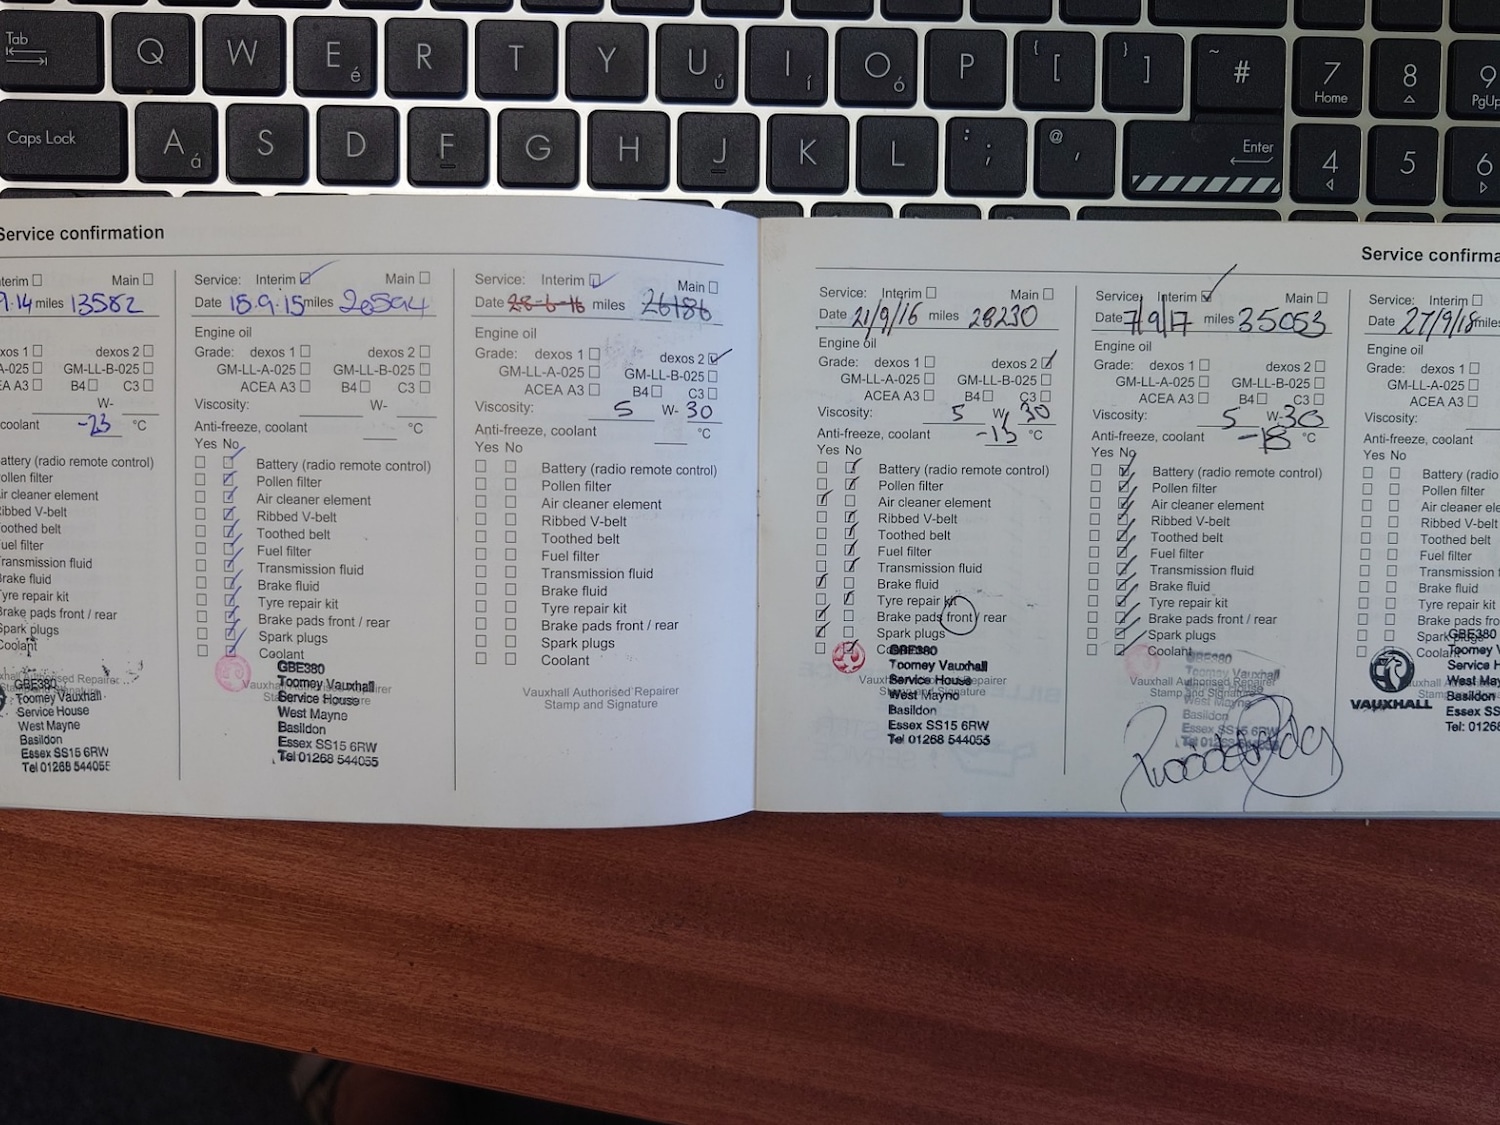 Tab Q W E é R T Y U ú I í O ó P { [ } ] ~ # 7 Home 8 9 PgUp
Caps Lock A á S D F G H J K L : ; @ ' Enter 4 5 6
Service confirmation
terim Main
9.14 miles 13582
exos 1 dexos 2
A-025 GM-LL-B-025
EA A3 B4 C3
W-
coolant -23 °C
attery (radio remote control)
ollen filter
ir cleaner element
ibbed V-belt
oothed belt
uel filter
ransmission fluid
rake fluid
yre repair kit
rake pads front / rear
park plugs
Coolant
GBE380
Toomey Vauxhall
Service House
West Mayne
Basildon
Essex SS15 6RW
Tel 01268 544055
Service: Interim Main
Date 15.9.15 miles 20594
Engine oil
Grade: dexos 1 dexos 2
GM-LL-A-025 GM-LL-B-025
ACEA A3 B4 C3
Viscosity: W-
Anti-freeze, coolant °C
Yes No
Battery (radio remote control)
Pollen filter
Air cleaner element
Ribbed V-belt
Toothed belt
Fuel filter
Transmission fluid
Brake fluid
Tyre repair kit
Brake pads front / rear
Spark plugs
Coolant
GBE380
Toomey Vauxhall
Service House
West Mayne
Basildon
Essex SS15 6RW
Tel 01268 544055
Service: Interim Main
Date 28-6-16 miles 26186
Engine oil
Grade: dexos 1 dexos 2
GM-LL-A-025 GM-LL-B-025
ACEA A3 B4 C3
Viscosity: 5 W- 30
Anti-freeze, coolant °C
Yes No
Battery (radio remote control)
Pollen filter
Air cleaner element
Ribbed V-belt
Toothed belt
Fuel filter
Transmission fluid
Brake fluid
Tyre repair kit
Brake pads front / rear
Spark plugs
Coolant
Vauxhall Authorised Repairer
Stamp and Signature
Service confirma
Service: Interim Main
Date 21/9/16 miles 28230
Engine oil
Grade: dexos 1 dexos 2
GM-LL-A-025 GM-LL-B-025
ACEA A3 B4 C3
Viscosity: 5 W- 30
Anti-freeze, coolant -15 °C
Yes No
Battery (radio remote control)
Pollen filter
Air cleaner element
Ribbed V-belt
Toothed belt
Fuel filter
Transmission fluid
Brake fluid
Tyre repair kit
Brake pads front / rear
Spark plugs
Coolant
GBE380
Toomey Vauxhall
Service House
West Mayne
Basildon
Essex SS15 6RW
Tel 01268 544055
Service: Interim Main
Date 7/9/17 miles 35053
Engine oil
Grade: dexos 1 dexos 2
GM-LL-A-025 GM-LL-B-025
ACEA A3 B4 C3
Viscosity: 5 W-30
Anti-freeze, coolant -18 °C
Yes No
Battery (radio remote control)
Pollen filter
Air cleaner element
Ribbed V-belt
Toothed belt
Fuel filter
Transmission fluid
Brake fluid
Tyre repair kit
Brake pads front / rear
Spark plugs
Coolant
GBE380
Toomey Vauxhall
Vauxhall Authorised Repairer
Stamp and Signature
West Mayne
Basildon
Essex SS15 6RW
Tel 01268 544055
Service: Interim
Date 27/9/18 miles
Engine oil
Grade: dexos 1
GM-LL-A-025
ACEA A3
Viscosity:
Anti-freeze, coolant
Yes No
Battery (radio
Pollen filter
Air cleaner ele
Ribbed V-belt
Toothed belt
Fuel filter
Transmission f
Brake fluid
Tyre repair kit
Brake pads fro
Spark plugs
Coolant
GBE380
Toomey V
Service H
West May
Basildon
Essex SS
Tel: 01268
VAUXHALL